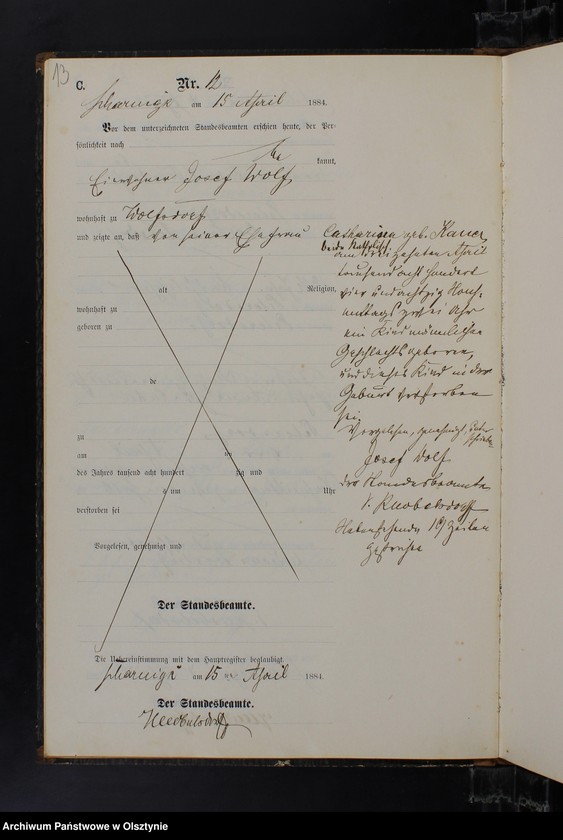 13
C.
Nr. 12
Scharnigk am 15 April 1884.
Vor dem unterzeichneten Standesbeamten erschien heute, der Per-
sönlichkeit nach
kannt,
Einwohner Josef Wolf,
wohnhaft zu Wolfsdorf
und zeigte an, daß von seiner Ehefrau
Catharina geb.
beide katholisch.
am dreizehnten April
tausend acht hundert
vier und achtzig Nach-
mittags zwei Uhr
ein Kind männlichen
Geschlechts geboren,
und dieses Kind in der
Geburt verstorben
sei.
Vorgelesen, genehmigt, unter
schrieben
Josef Wolf
Der Standesbeamte
v. Knobelsdorff
Nebenstehende 10 Zeilen
gestrichen
alt Religion,
wohnhaft zu
geboren zu
de
zu
am
des Jahres tausend acht hundert zig und
um Uhr
verstorben sei
Vorgelesen, genehmigt und
Der Standesbeamte.
Die Uebereinstimmung mit dem Hauptregister beglaubigt
Scharnigk am 15 April 1884.
Der Standesbeamte.
v Knobelsdorff
Archiwum Państwowe w Olsztynie